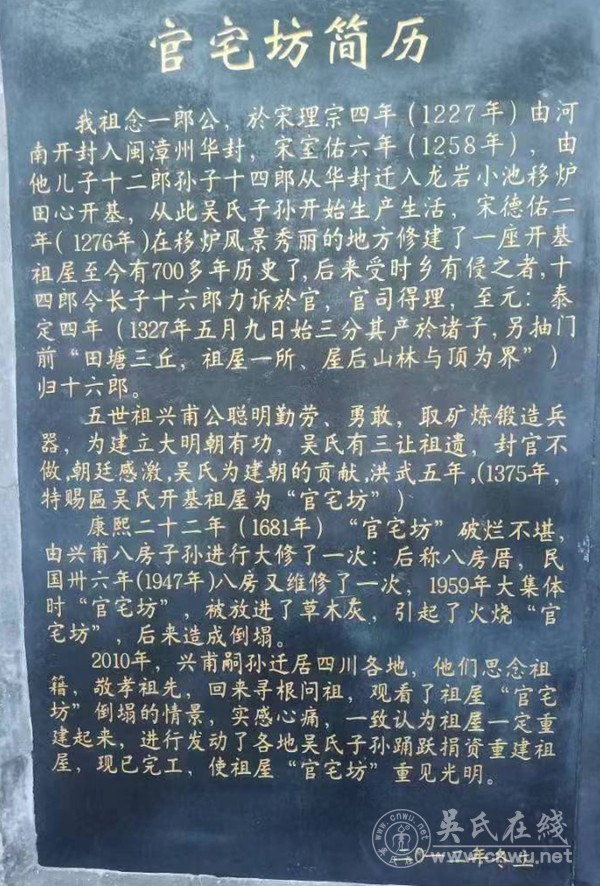 官宅坊简历
我祖念一郎公，於宋理宗四年（1227年）由河
南开封入闽漳州华封，宋室佑六年（1258年），由
他儿子十二郎孙子十四郎从华封迁入龙岩小池移炉
田心开基，从此吴氏子孙开始生产生活，宋德佑二
年(1276年)在移炉风景秀丽的地方修建了一座开基
祖屋至今有700多年历史了,后来受时乡有侵之者,十
四郎令长子十六郎力诉於官，官司得理，至元：泰
定四年（1327年五月九日始三分其产於诸子，另抽门
前“田塘三丘，祖屋一所、屋后山林与顶为界”）
归十六郎。
五世祖兴甫公聪明勤劳、勇敢，取矿炼锻造兵
器，为建立大明朝有功，吴氏有三让祖遗，封官不
做,朝廷感激,吴氏为建朝的贡献,洪武五年,(1375年,
特赐匾吴氏开基祖屋为“官宅坊”）
康熙二十二年（1681年）“官宅坊”破烂不堪，
由兴甫八房子孙进行大修了一次：后称八房厝，民
国卅六年(1947年)八房又维修了一次，1959年大集体
时“官宅坊”，被放进了草木灰，引起了火烧“官
宅坊”，后来造成倒塌。
2010年，兴甫嗣孙迁居四川各地，他们思念祖
籍，敬孝祖先，回来寻根问祖，观看了祖屋“官宅
坊”倒塌的情景，实感心痛，一致认为祖屋一定重
建起来，进行发动了各地吴氏子孙踊跃捐资重建祖
屋，现已完工，使祖屋“官宅坊”重见光明。
年冬立
吴氏在线
www.cnwu.net